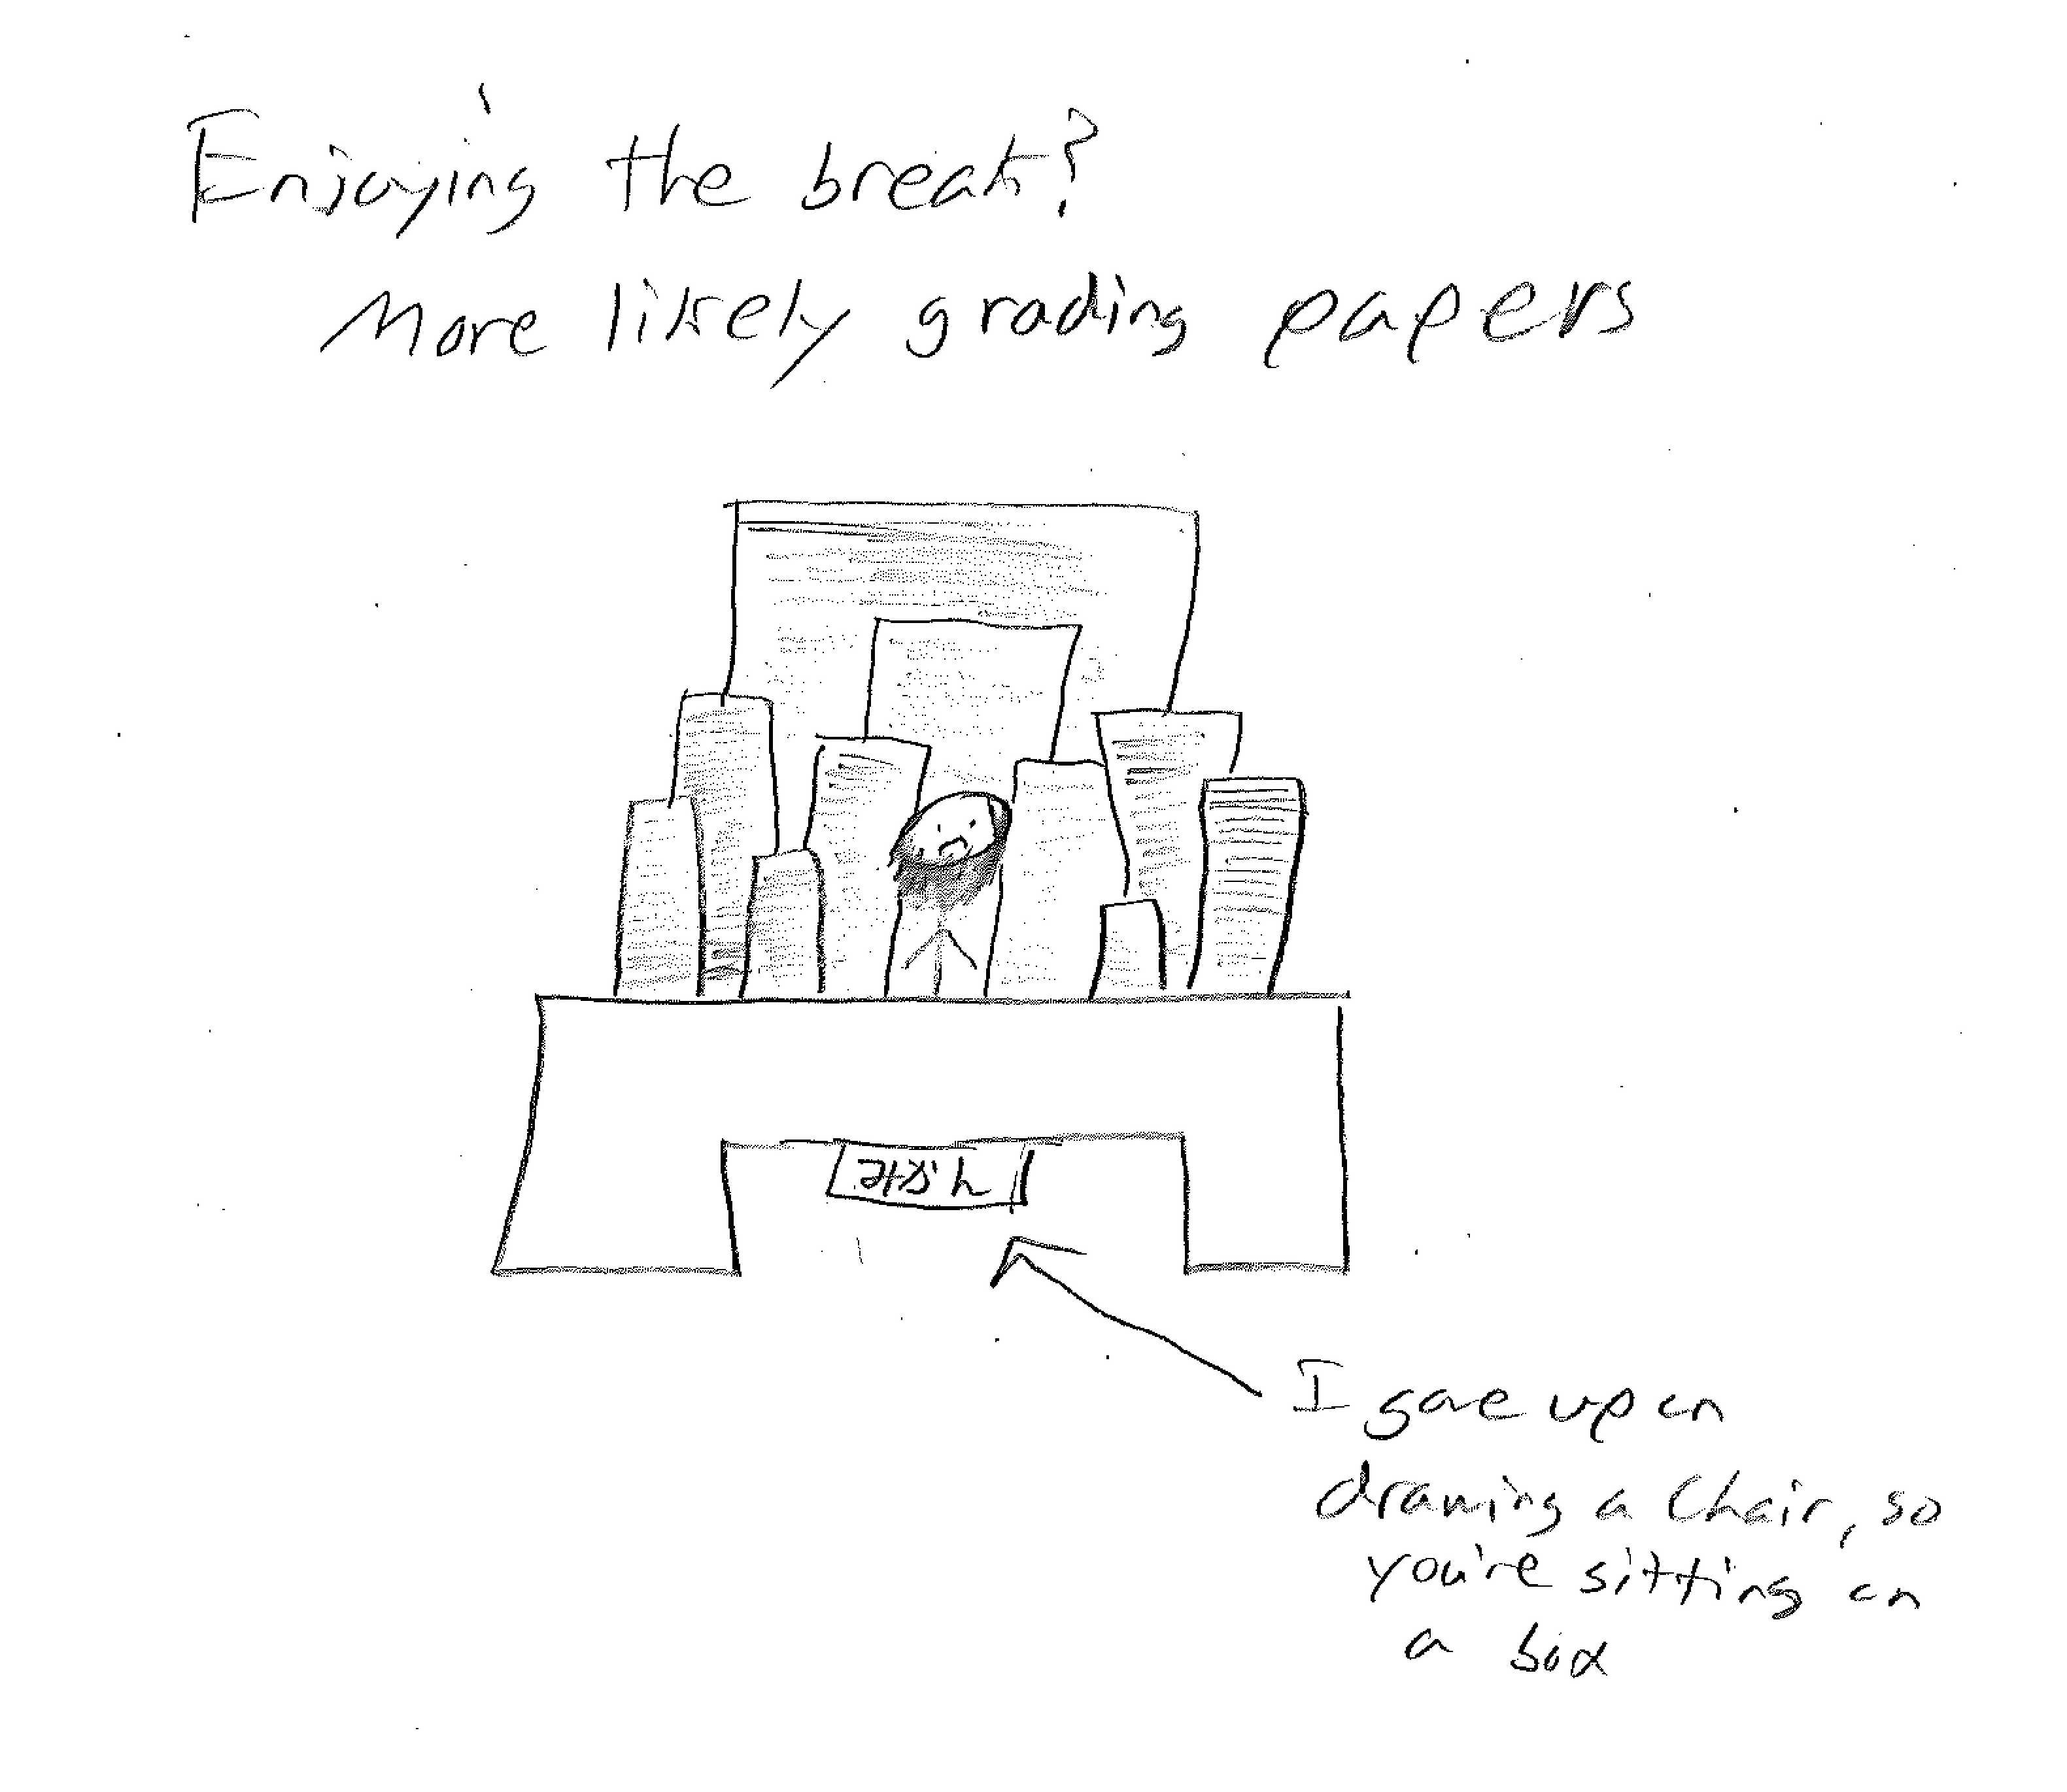 Enjoying the break?
More likely grading papers
みかん
I gave up on
drawing a chair, so
you're sitting on
a box